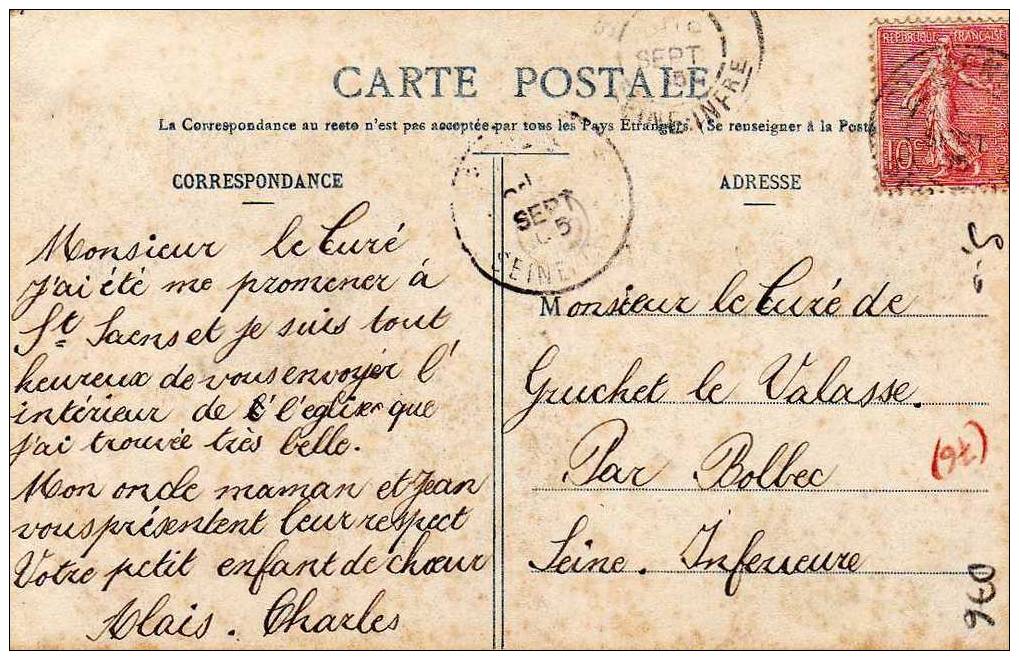 CARTE POSTALE
La Correspondance au recto n'est pas acceptée par tous les Pays Etrangers. (Se renseigner à la Poste
CORRESPONDANCE
Monsieur le Curé
j'ai été me promener à
St Saens et je suis tout
heureux de vous envoyer l'
intérieur de l'eglise que
j'ai trouvée très belle.
Mon oncle maman et Jean
vous présentent leur respect
Votre petit enfant de chœur
Alais. Charles
ADRESSE
Monsieur le Curé de
Gruchet le Valasse.
Par Bolbec
Seine. Inferieure
REPUBLIQUE FRANÇAISE
10c
SEPT
INFRE
SEPT
05
SEINE
(76)
960